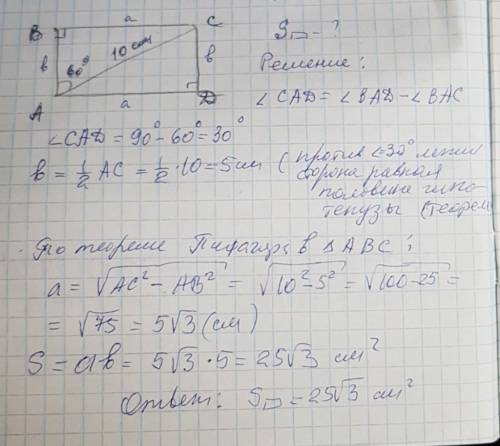 B a C
10 см
S▭ - ?
b 60° b
Решение:
A a D
∠CAD = ∠BAD - ∠BAC
∠CAD = 90° - 60° = 30°
b = 1/2 AC = 1/2 · 10 = 5 см (против ∠30° лежит
сторона равная
половине гипо
тенузы (теорем
По теореме Пифагора в △ABC:
a = √(AC² - AB²) = √(10² - 5²) = √(100 - 25) =
= √75 = 5√3 (см)
S = ab = 5√3 · 5 = 25√3 см²
Ответ: S▭ = 25√3 см²